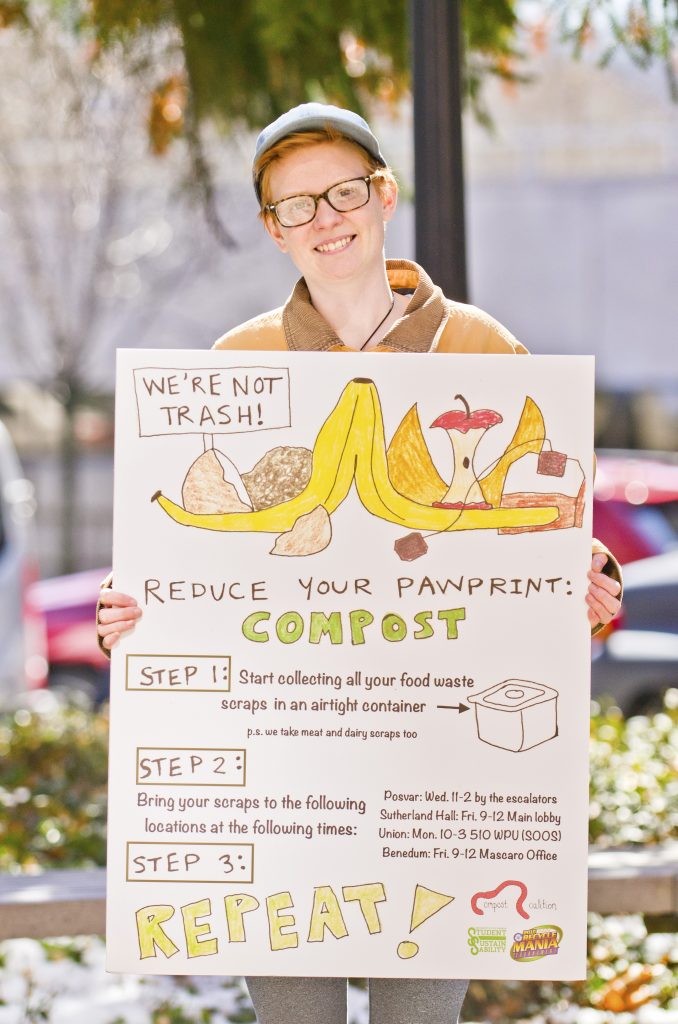 WE'RE NOT
TRASH!
REDUCE YOUR PAWPRINT:
COMPOST
STEP 1:
Start collecting all your food waste
scraps in an airtight container
p.s. we take meat and dairy scraps too
STEP 2:
Bring your scraps to the following
locations at the following times:
Posvar: Wed. 11-2 by the escalators
Sutherland Hall: Fri. 9-12 Main lobby
Union: Mon. 10-3 510 WPU (SOOS)
Benedum: Fri. 9-12 Mascaro Office
STEP 3:
REPEAT!
ompost oalition
STUDENT
SUSTAIN
ABILITY
RECYCLE
MANIA